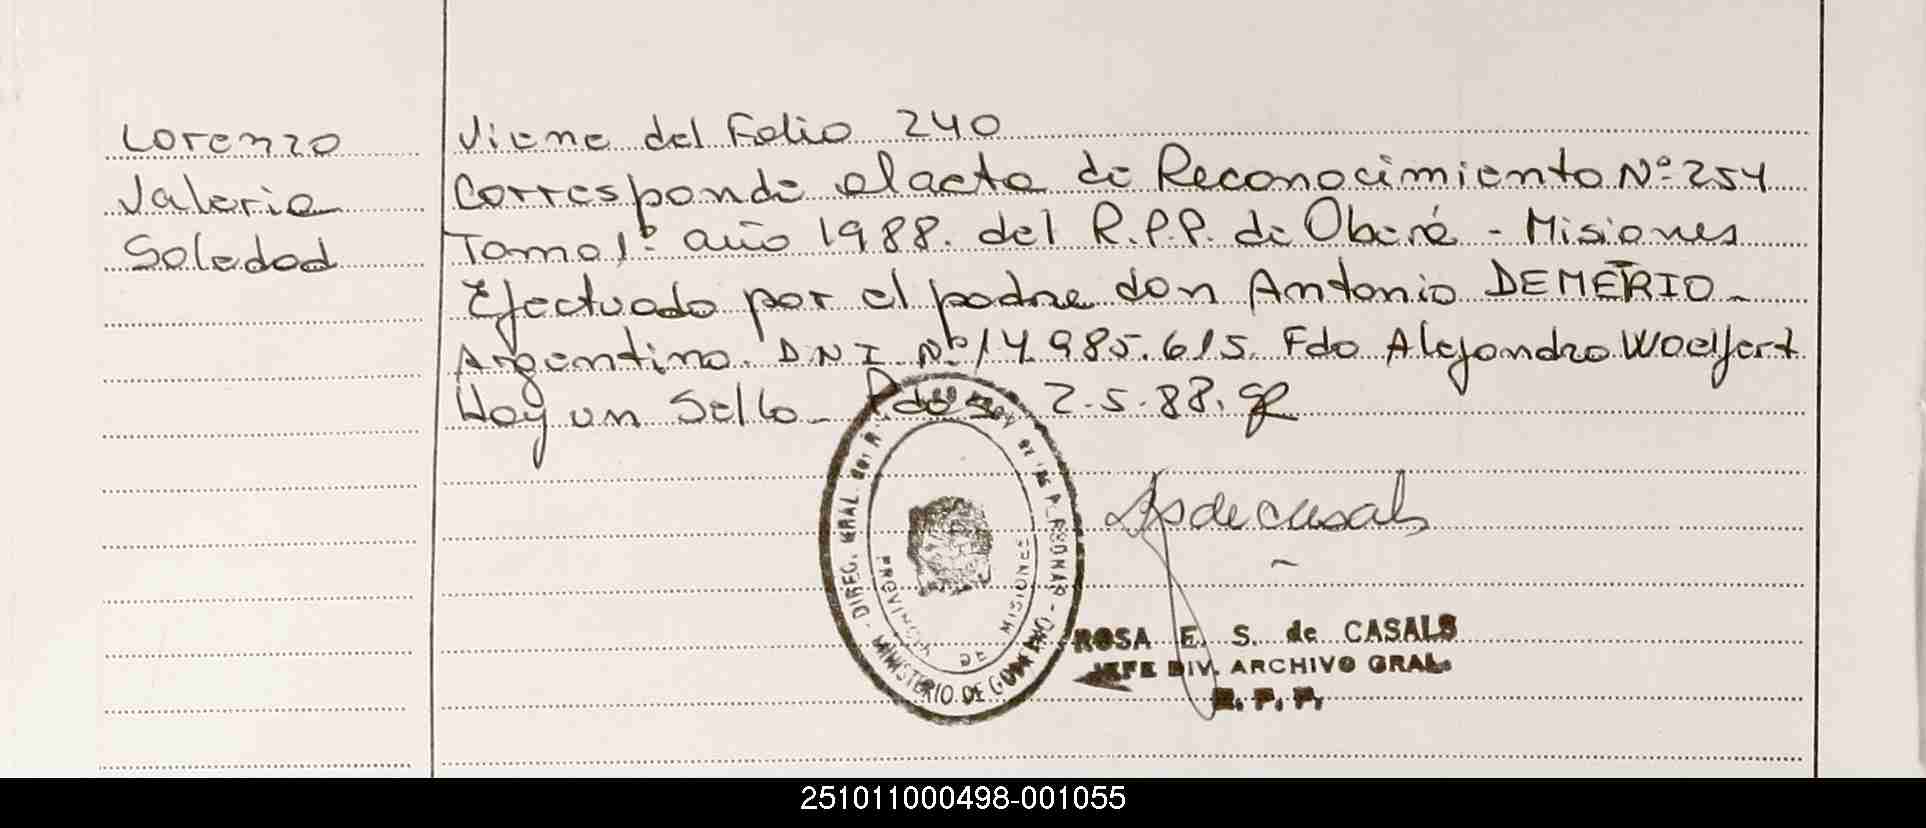 Lorenzo
Valeria
Soledad
Viene del Folio 240
Corresponde al acta de Reconocimiento Nº 254
Tomo 1º año 1988. del R.P.P. de Oberá - Misiones
Efectuado por el padre don Antonio DEMETRIO -
Argentino. DNI Nº 14.985.615. Fdo Alejandro Woelfert
Hay un Sello - Pdas 2.5.88.
MINISTERIO DE GOBIERNO - DIREC. GRAL. DEL R
DE LAS PERSONAS
PROVINCIA DE MISIONES
S de Casals
ROSA E. S. de CASALS
JEFE DIV. ARCHIVO GRAL.
R. P. P.
251011000498-001055